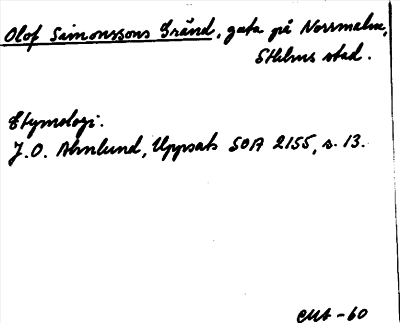 Olof Simonssons Gränd, gata på Norrmalm,
Sthlms stad.
Etymologi.
J.O. Almlund, Uppsats SOA 2155, s. 13.
-60